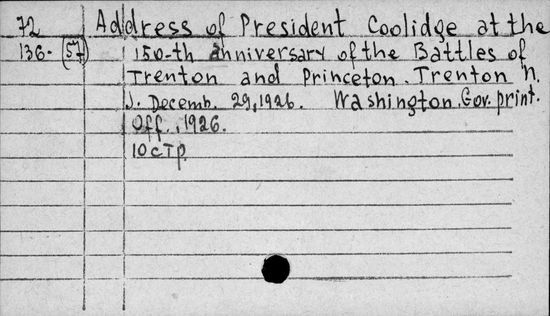 72 Address of President Coolidge at the
136-(57) 150-th anniversary of the Battles of
Trenton and Princeton. Trenton N.
J. Decemb. 29, 1926. Washington, Gov. print.
Off., 1926.
10 стр.